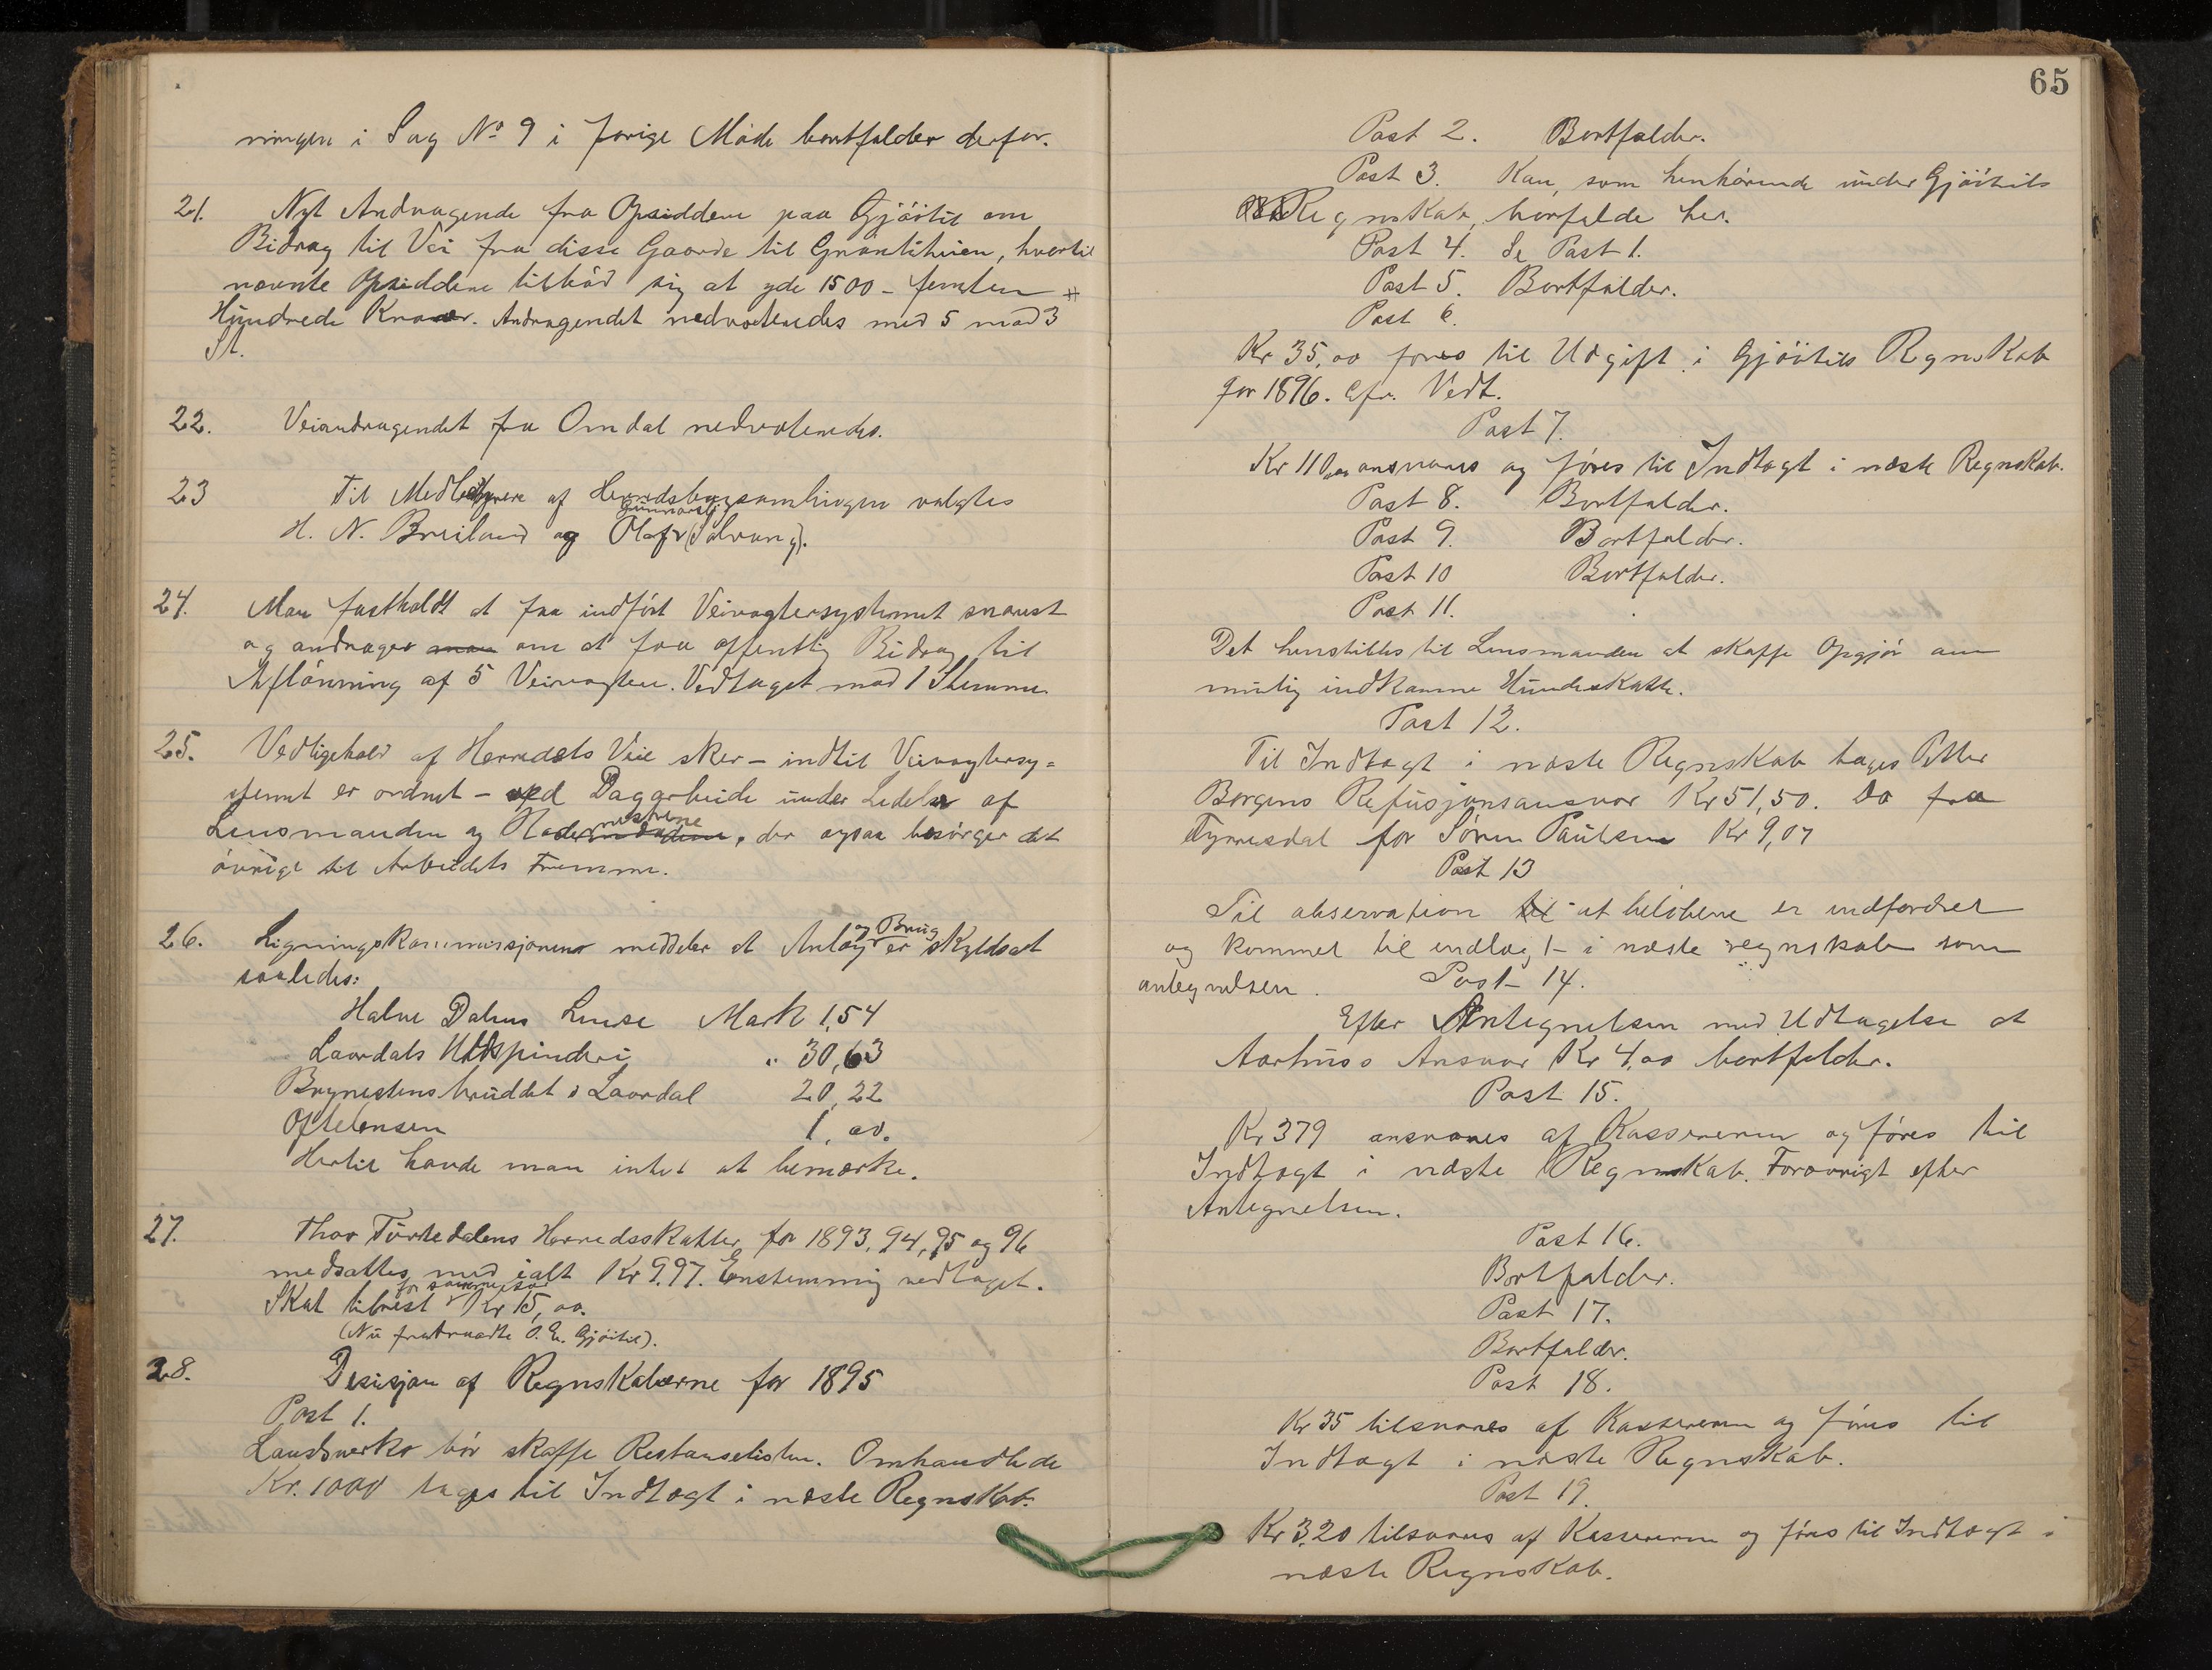 ningen i Sag No 9 i forige Möde bortfalder derfor.
21. Nyt Andragende fra Opsiddere paa Gjöitil om
Bidrag til Vei fra disse Gaarde til Grönliheien, hvortil
nævnte Opsiddere tilböd sig at yde 1500 - femten
Hundrede Kroner. Andragendet nedvoteredes med 5 mod 3
St.
22. Veiandragendet fra Omdal nedvoteredes.
23 Til Medlemmer af Herredsbogsamlingen valgtes
H. N. Breiland og Olaf Gunnarsen (Salvang).
24. Man fastholdt at faa indfört Veivogtersystemet snarest
og andrager om at faa offentlig Bidrag til
Aflönning af 5 Veivogtere. Vedtaget mod 1 Stemme
25. Vedligehold af Herredets Veie sker - indtil Veivogtersy=
stemet er ordnet - ved Dagarbeide under Ledelse af
Lensmanden og Rodemestrene, der ogsaa besörger det
övrige til Arbeidets Fremme.
26. Ligningskommissjonen meddeler at Anlæg og Brug er skyldsat
saaledes:
Halne Dalens Lense Mark 1,54
Laurdals Uldspinderi " 30,63
Brynestensbruddet i Laurdal 20,22
Oftelensen 1,00.
Hertil havde man intet at bemærke.
27. Thor Turtedalens Herredsskatter for 1893, 94, 95 og 96
nedsattes med ialt Kr 9.97. Enstemmig vedtaget.
Skat tilrest for samme Kr 15,00.
(Nu fratraadte O. E. Gjöitil).
28. Desisjon af Regnskaberne for 1895
Post 1.
Landsverk bör skaffe Restanselisten. Omhandlede
Kr. 1000 tages til Indtægt i næste Regnskab.
65
Post 2. Bortfalder.
Post 3. Kan, som henhörende under Gjöitils
Regnskab, bortfalde her.
Post 4. Se Post 1.
Post 5. Bortfalder.
Post 6.
Kr 35,00 föres til Udgift i Gjöitils Regnskab
for 1896. Cfr. Vedt.
Post 7.
Kr 110,00 ansvares og föres til Indtægt i næste Regnskab.
Post 8. Bortfalder.
Post 9. Bortfalder.
Post 10 Bortfalder.
Post 11.
Det henstilles til Lensmanden at skaffe Opgjör om
mulig indkomne Hundeskatte.
Post 12.
Til Indtægt i næste Regnskab tages Petter
Borgens Refusjonsansvar Kr 51,50. Do fra
Fyrresdal for Sören Paulsen Kr 9,07
Post 13
Til observation at belöbene er indfordret
og kommet til indtægt i næste regnskab som
antegnelsen. Post 14.
Efter Antegnelsen med Udtagelse at
Aarhus's Ansvar Kr 4,00 bortfalder.
Post 15.
Kr 379 ansvares af Kassereren og föres til
Indtægt i næste Regnskab. Forövrigt efter
Antegnelsen.
Post 16.
Bortfalder.
Post 17.
Bortfalder.
Post 18.
Kr 35 tilsvares af Kassereren og föres til
Indtægt i næste Regnskab.
Post 19.
Kr 3,20 tilsvares af Kassereren og föres til Indtægt i
næste Regnskab.